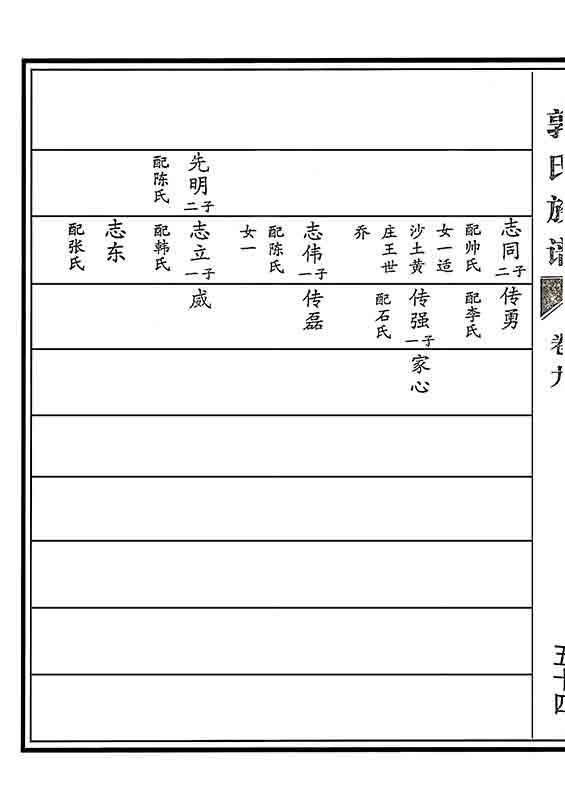 郭氏族谱
卷九
五十四
先明二子
配陈氏
志同二子
配帅氏
女一适
沙土黄
庄王世
乔
志伟一子
配陈氏
女一
志立一子
配韩氏
志东
配张氏
传勇
配李氏
传强一子
配石氏
传磊
威
家心